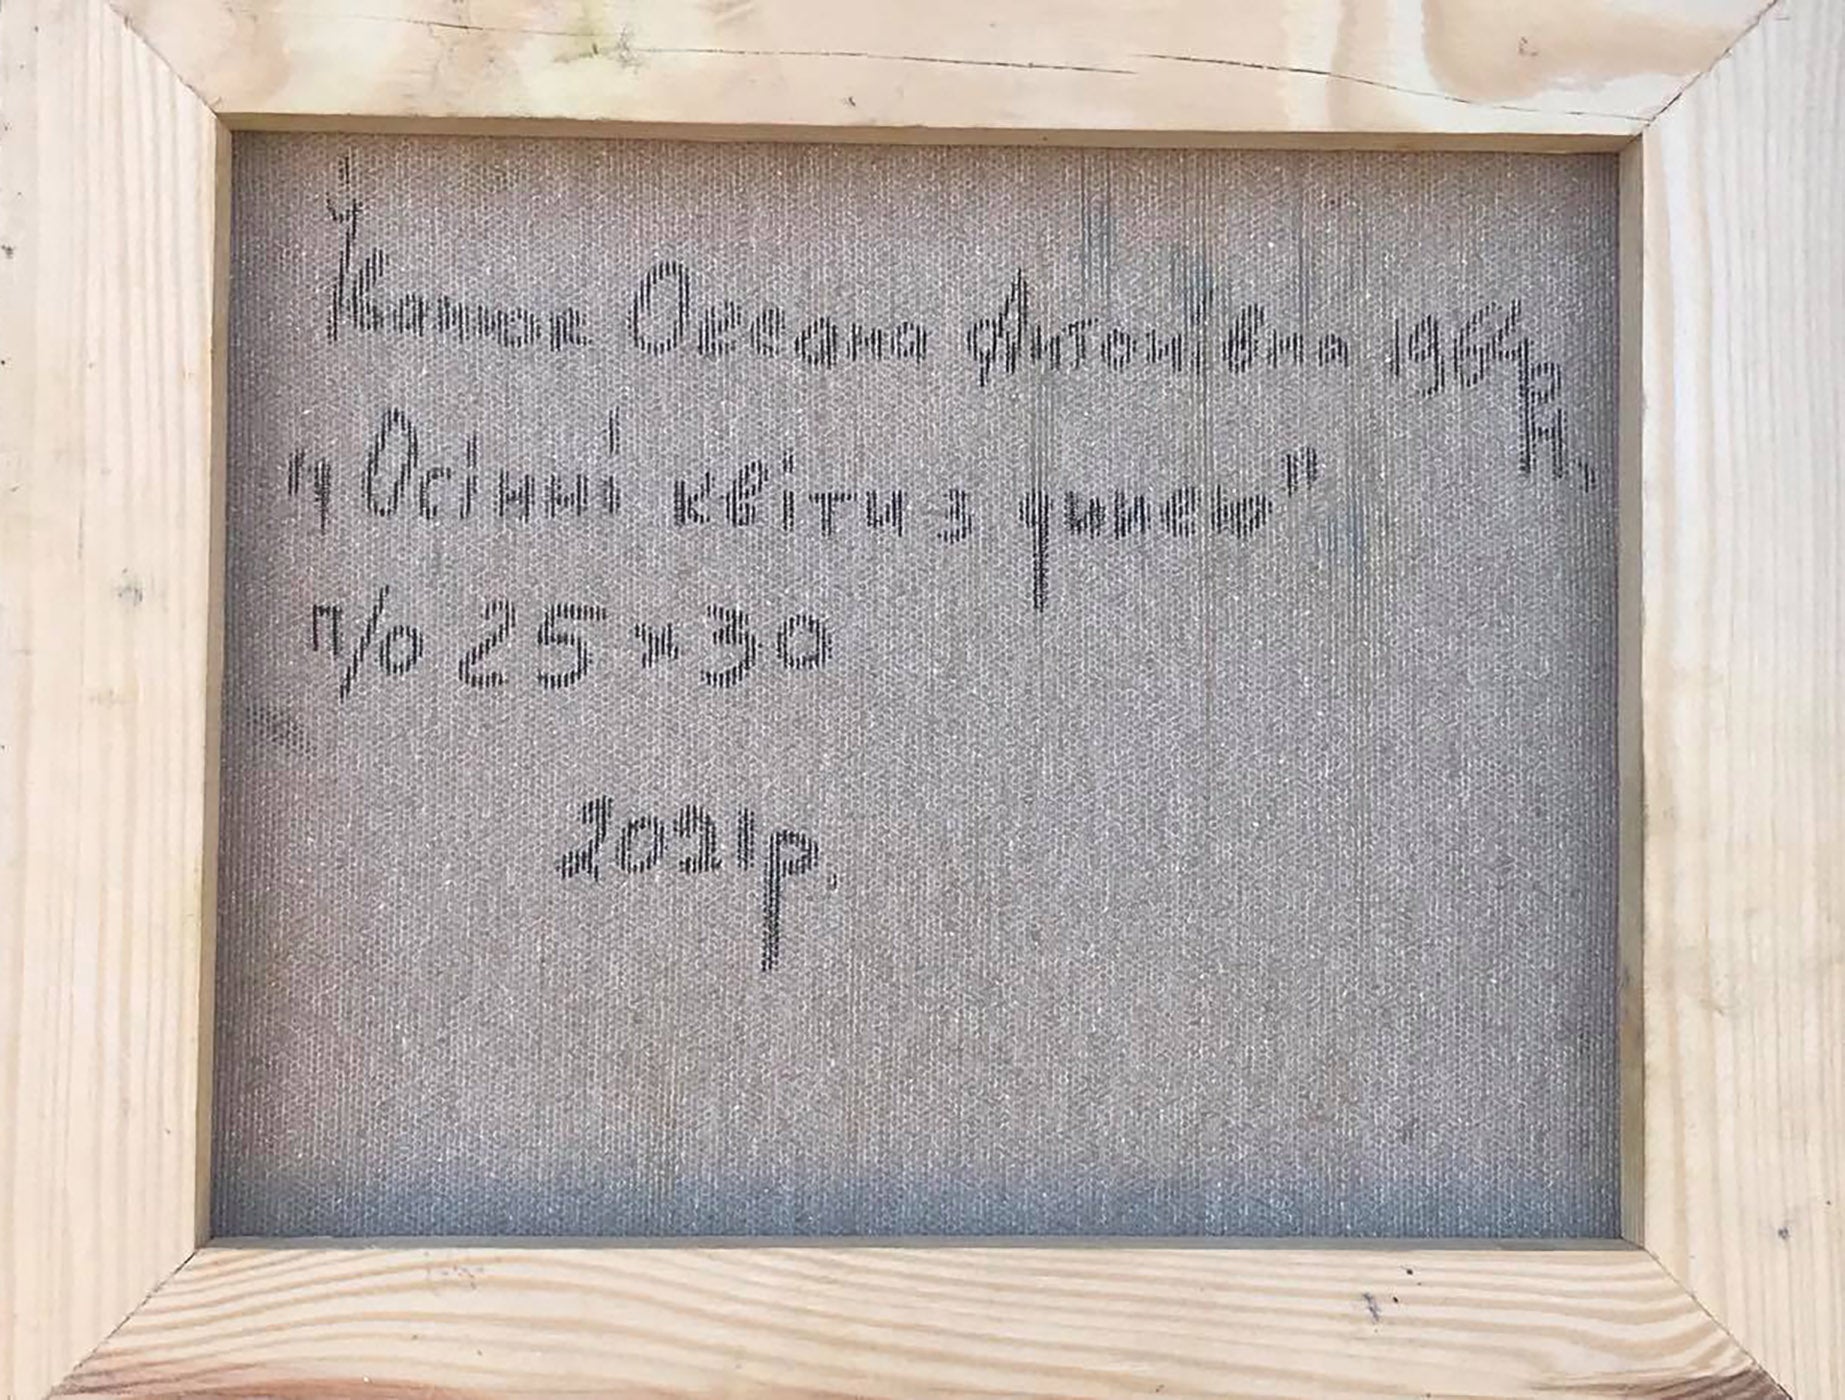 Канюк Оксана Антонівна 1964 р.н.
"Осінні квіти з динею"
п/о 25х30
2021р.